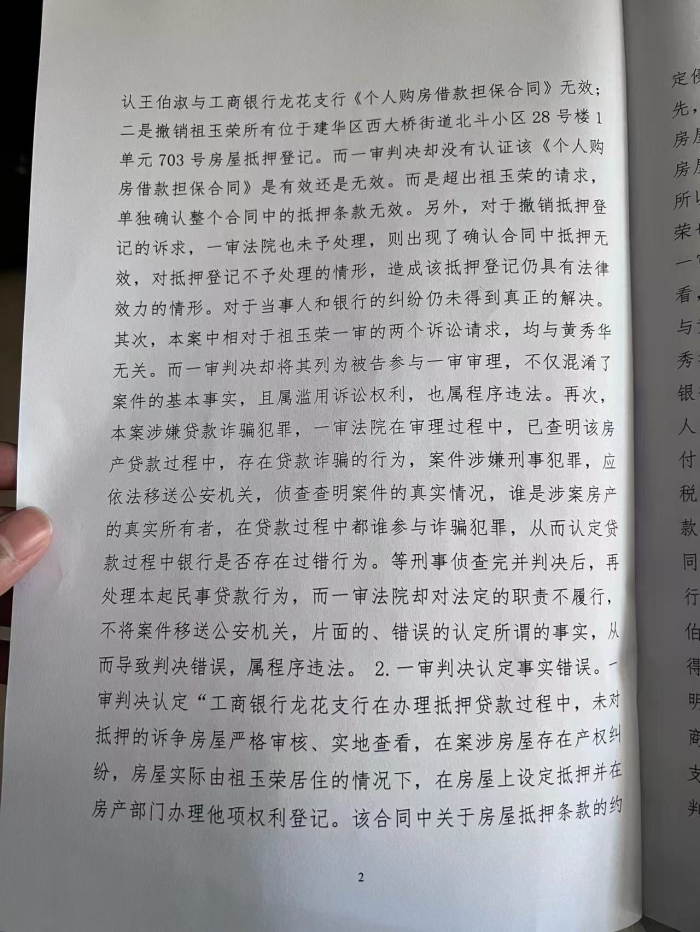 认王伯淑与工商银行龙花支行《个人购房借款担保合同》无效；
二是撤销祖玉荣所有位于建华区西大桥街道北斗小区 28 号楼 1
单元 703 号房屋抵押登记。而一审判决却没有认证该《个人购
房借款担保合同》是有效还是无效。而是超出祖玉荣的请求，
单独确认整个合同中的抵押条款无效。另外，对于撤销抵押登
记的诉求，一审法院也未予处理，则出现了确认合同中抵押无
效，对抵押登记不予处理的情形，造成该抵押登记仍具有法律
效力的情形。对于当事人和银行的纠纷仍未得到真正的解决。
其次，本案中相对于祖玉荣一审的两个诉讼请求，均与黄秀华
无关。而一审判决却将其列为被告参与一审审理，不仅混淆了
案件的基本事实，且属滥用诉讼权利，也属程序违法。再次，
本案涉嫌贷款诈骗犯罪，一审法院在审理过程中，已查明该房
产贷款过程中，存在贷款诈骗的行为，案件涉嫌刑事犯罪，应
依法移送公安机关，侦查查明案件的真实情况，谁是涉案房产
的真实所有者，在贷款过程中都谁参与诈骗犯罪，从而认定贷
款过程中银行是否存在过错行为。等刑事侦查完并判决后，再
处理本起民事贷款行为，而一审法院却对法定的职责不履行，
不将案件移送公安机关，片面的、错误的认定所谓的事实，从
而导致判决错误，属程序违法。 2.一审判决认定事实错误。一
审判决认定“工商银行龙花支行在办理抵押贷款过程中，未对
抵押的诉争房屋严格审核、实地查看，在案涉房屋存在产权纠
纷，房屋实际由祖玉荣居住的情况下，在房屋上设定抵押并在
房产部门办理他项权利登记。该合同中关于房屋抵押条款的约
2
定
先，
房
房
所以
荣
一审
看，
与
秀
银
人
付
税
款
同
行
伯
得
明
商
支
判